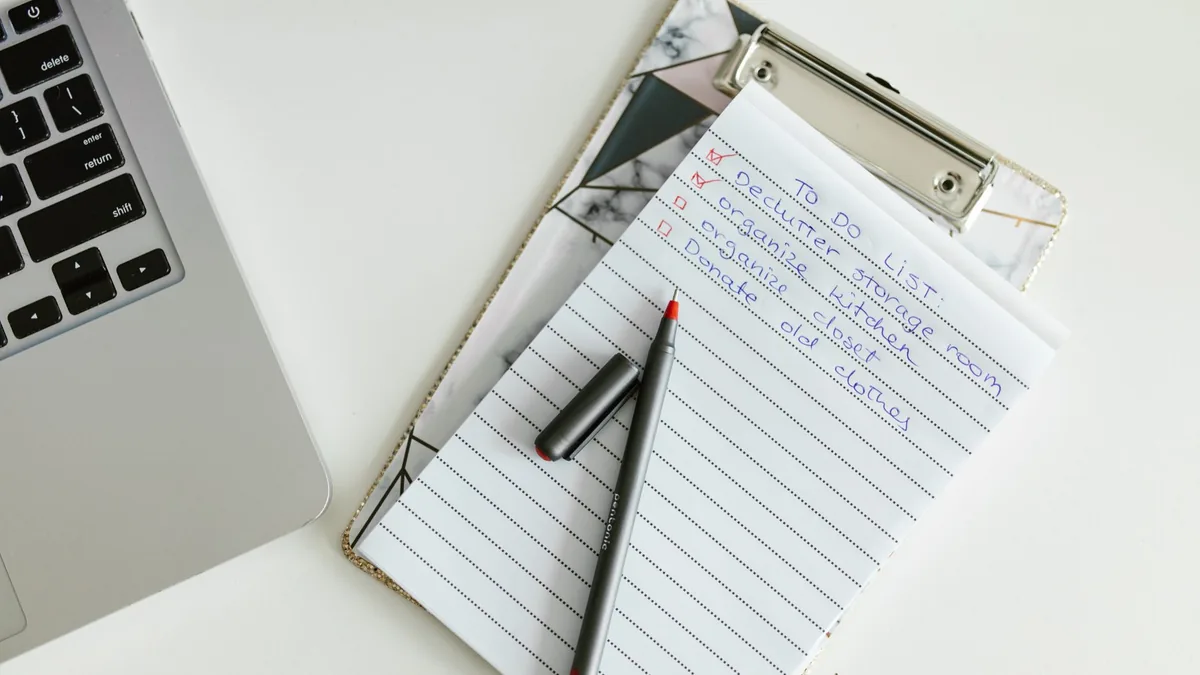 delete
enter
return
shift
} ]
| \
TO DO LIST:
Declutter storage room
organize kitchen
organize closet
Donate old clothes
pentonic